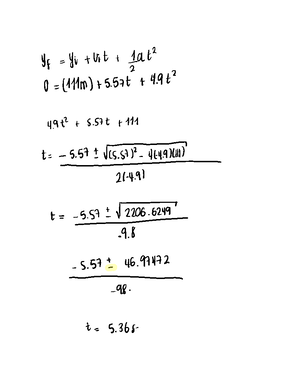 y_f = y_i + v_i t + 1/2 a t²
0 = (111m) + 5.57t + 4.9t²
4.9t² + 5.57t + 111
t = -5.57 ± √(5.57)² - 4(4.9)(111)
2(-4.9)
t = -5.57 ± √2206.6249
-9.8
-5.57 ± 46.97472
-98.
t = 5.36s.